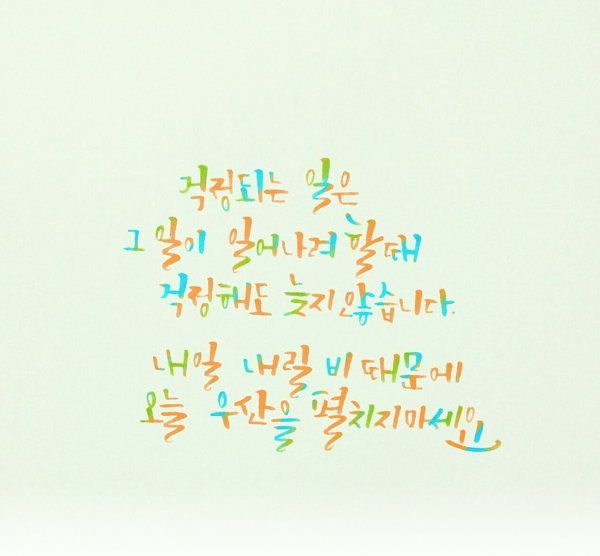 걱정되는 일은
그 일이 일어나려 할 때
걱정해도 늦지 않습니다.
내일 내릴 비 때문에
오늘 우산을 펼치지마세요